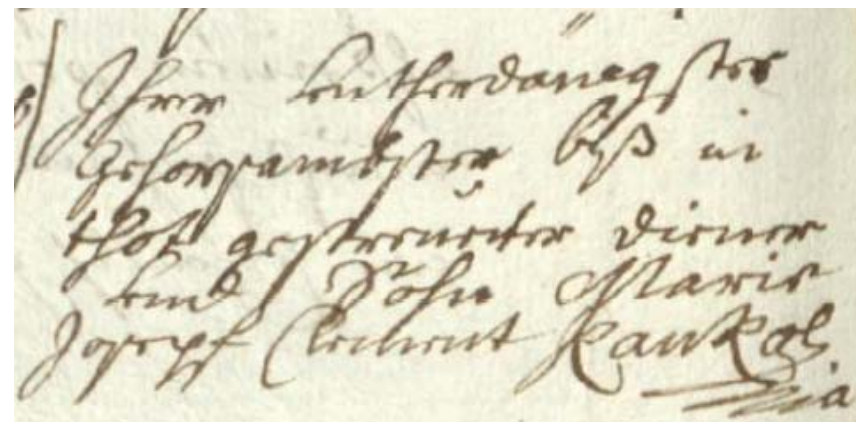 Ihrer untherdänigster
Gehorsambster biß in
thot gestreueiter diener
und Sohn Marie
Joseph Clement Kaukol